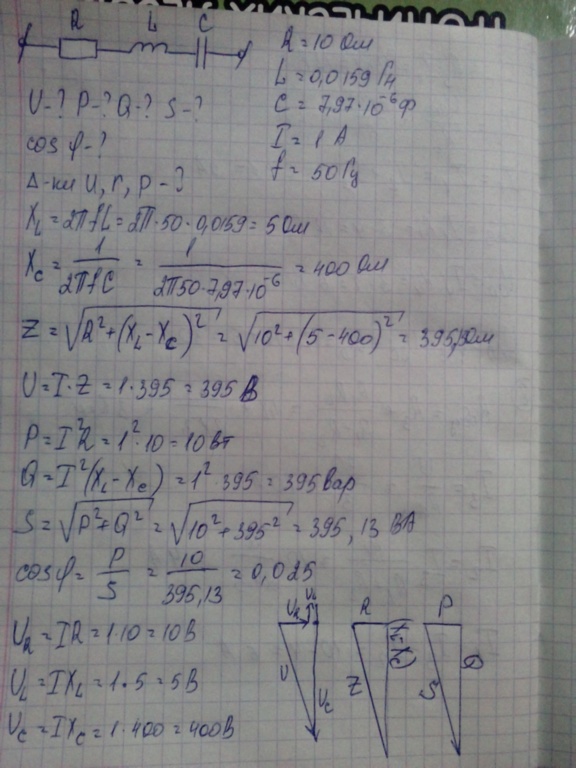 R L C
R = 10 Ом
L = 0,0159 Гн
C = 7,97·10⁻⁶ Ф
I = 1 А
f = 50 Гц
U-? P-? Q-? S-?
cos φ-?
Δ-ки U, r, p-?
X_L = 2πfL = 2π·50·0,0159 = 5 Ом
X_C = 1/(2πfC) = 1/(2π50·7,97·10⁻⁶) = 400 Ом
Z = √(R² + (X_L - X_C)²) = √(10² + (5 - 400)²) = 395,13 Ом
U = I·Z = 1·395 = 395 В
P = I²R = 1²·10 = 10 Вт
Q = I²(X_L - X_C) = 1²·395 = 395 Вар
S = √(P² + Q²) = √(10² + 395²) = 395,13 ВА
cos φ = P/S = 10/395,13 = 0,025
U_R = IR = 1·10 = 10 В
U_L = IX_L = 1·5 = 5 В
U_C = IX_C = 1·400 = 400 В
U_R U_L U U_C
R Z (X_L - X_C)
P S Q